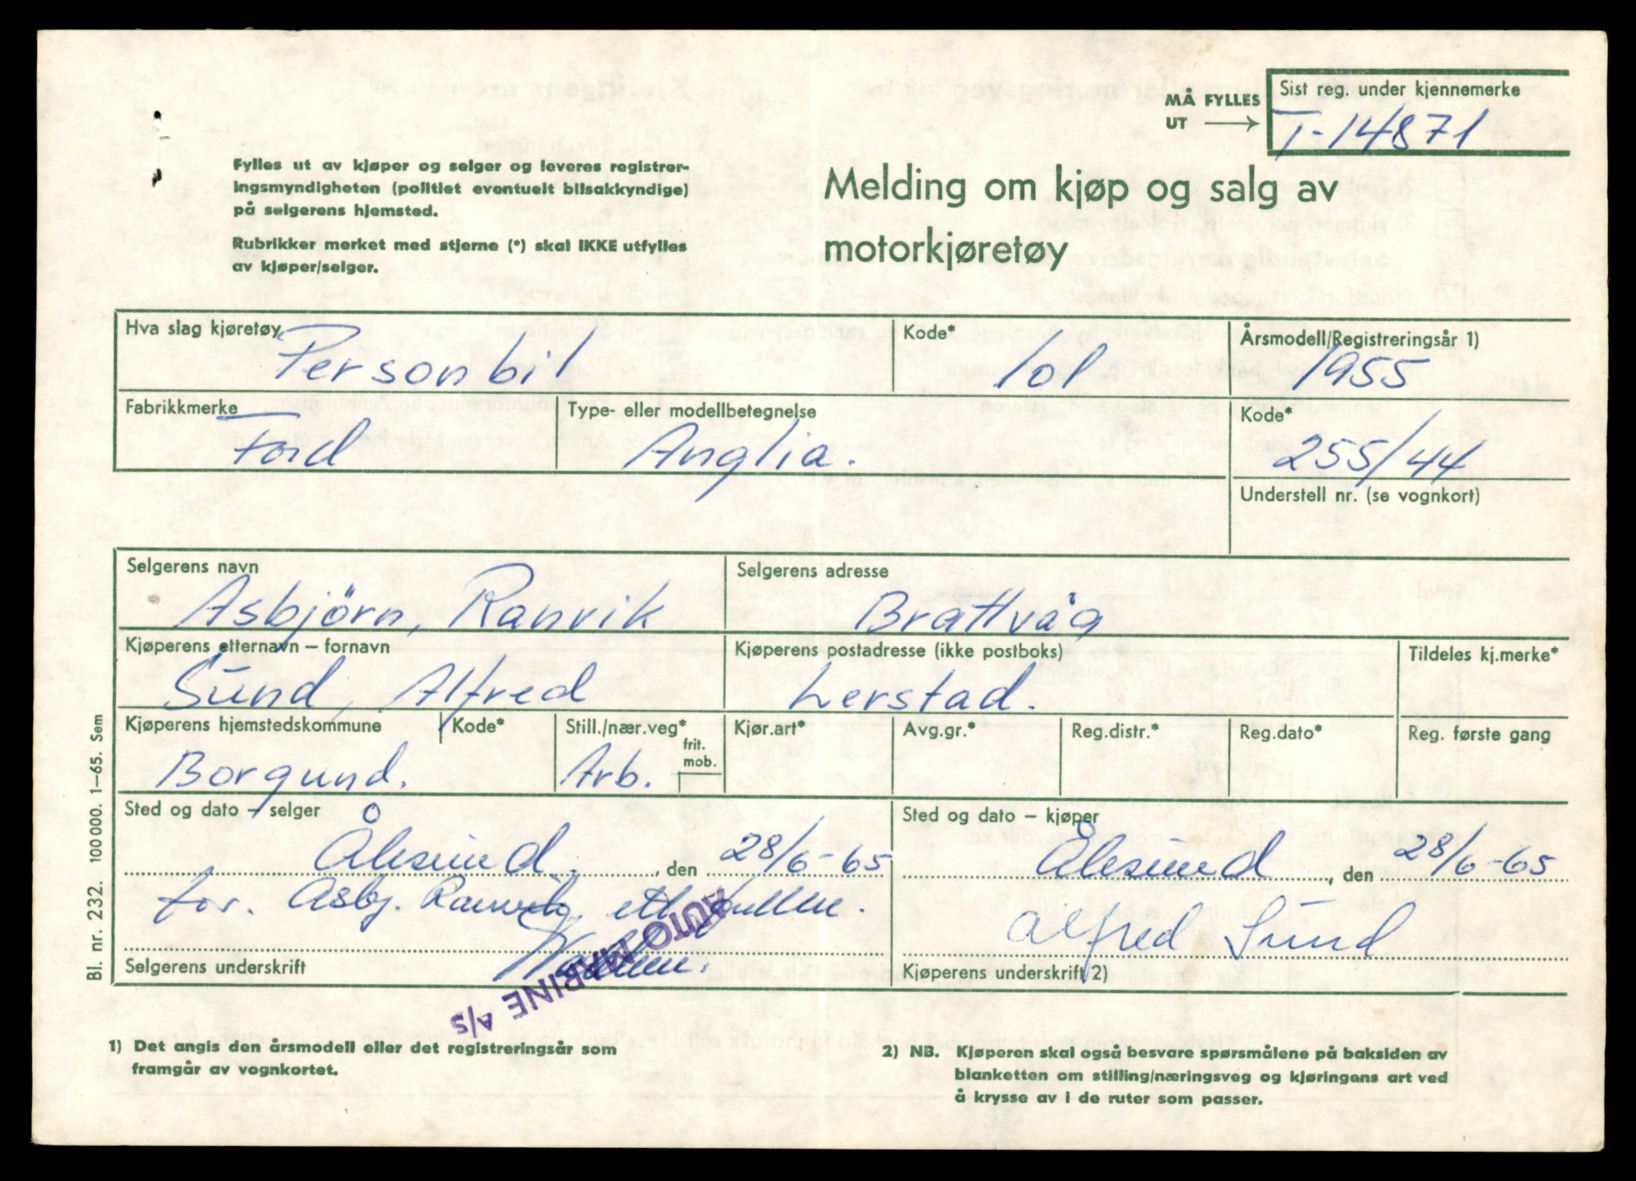 MÅ FYLLES UT →
Sist reg. under kjennemerke
T-14871
Fylles ut av kjøper og selger og leveres registrer-
ingsmyndigheten (politiet eventuelt bilsakkyndige)
på selgerens hjemsted.
Rubrikker merket med stjerne (*) skal IKKE utfylles
av kjøper/selger.
Melding om kjøp og salg av
motorkjøretøy
Hva slag kjøretøy
Personbil
Kode*
101
Årsmodell/Registreringsår 1)
1955
Fabrikkmerke
Ford
Type- eller modellbetegnelse
Anglia.
Kode*
255/44
Understell nr. (se vognkort)
Selgerens navn
Asbjörn, Ranvik
Selgerens adresse
Brattvåg
Kjøperens etternavn – fornavn
Sund, Alfred
Kjøperens postadresse (ikke postboks)
Lerstad.
Tildeles kj.merke*
Kjøperens hjemstedskommune
Borgund.
Kode*
Still./nær.veg*
Arb.
frit.
mob.
Kjør.art*
Avg.gr.*
Reg.distr.*
Reg.dato*
Reg. første gang
Sted og dato – selger
Ålesund., den 28/6-65
for. Asbj. Ranvik, ett. fullm.
Selgerens underskrift
AUTO MARINE A/S
Sted og dato – kjøper
Ålesund, den 28/6-65
Alfred Sund
Kjøperens underskrift 2)
Bl. nr. 232. 100 000. 1–65. Sem
1) Det angis den årsmodell eller det registreringsår som
framgår av vognkortet.
2) NB. Kjøperen skal også besvare spørsmålene på baksiden av
blanketten om stilling/næringsveg og kjøringens art ved
å krysse av i de ruter som passer.